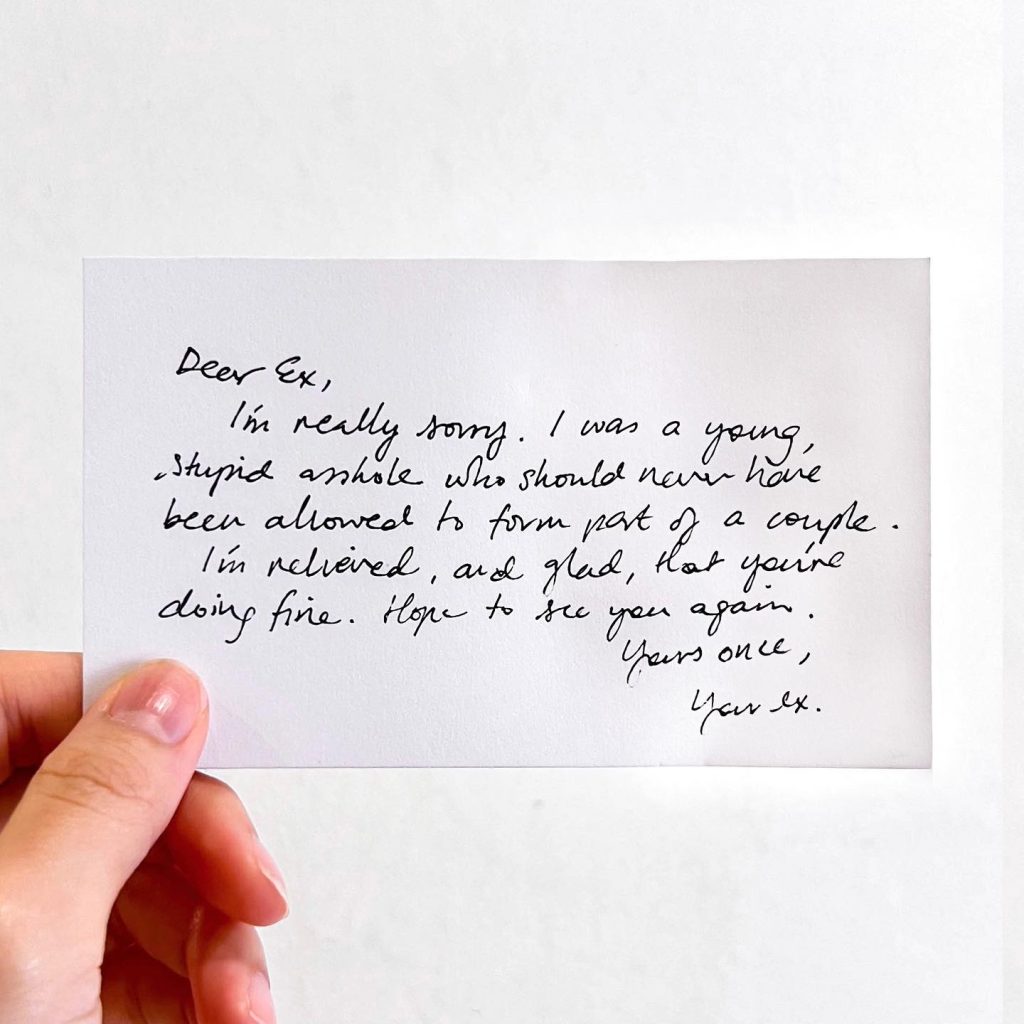 Dear Ex,
I'm really sorry. I was a young,
stupid asshole who should never have
been allowed to form part of a couple.
I'm relieved, and glad, that you're
doing fine. Hope to see you again.
Yours once,
Your ex.